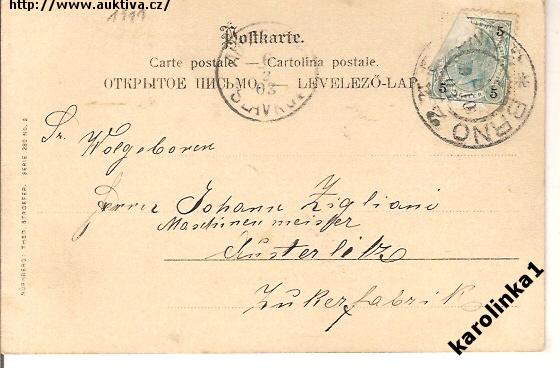 http://www.auktiva.cz/
1911
Postkarte.
Carte postale. — Cartolina postale.
ОТКРЫТОЕ ПИСЬМО. — LEVELEZŐ-LAP
5
5 5
BRNO 2
SLAVKOV
03
Sr. Wolgeboren
Herrn Johann Zigliani
Maschinenmeister
Austerlitz
Zukerfabrik
NÜRNBERG: THEO. STROEFER. SERIE 280 NO. 2
karolinka1